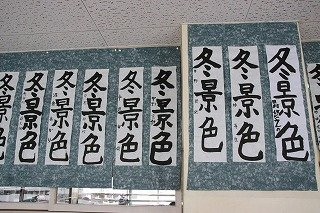 冬景色
冬景色
冬景色
冬景色
冬景色
冬景色
冬景色
冬景色
冬景色